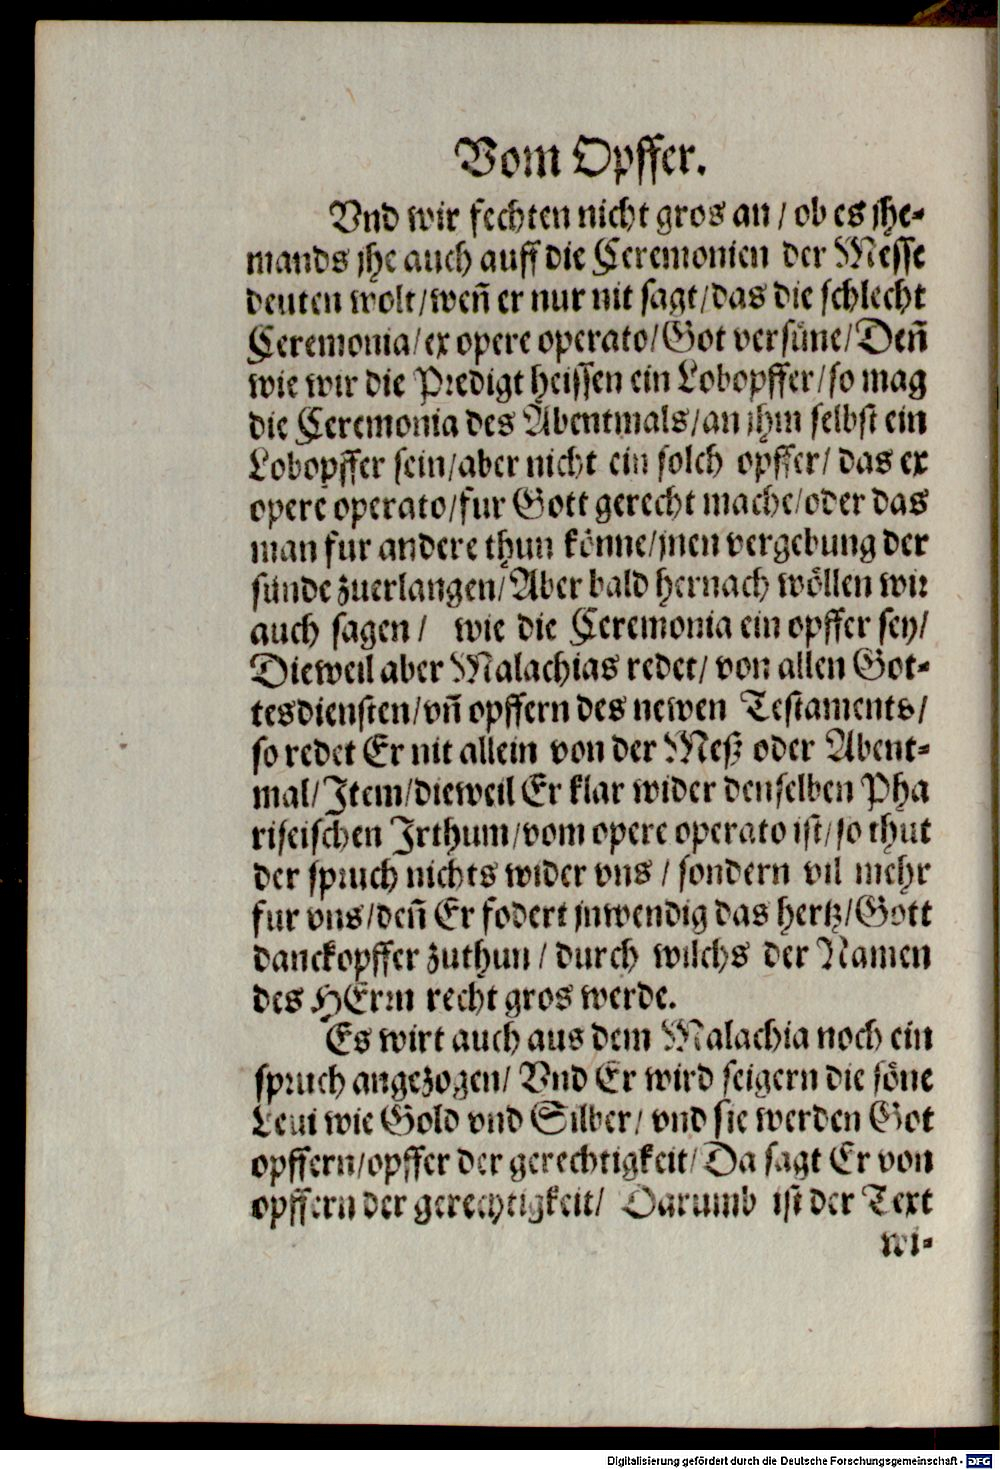 Vom Opffer.
Vnd wir fechten nicht gros an / ob es jhe-
mands jhe auch auff die Ceremonien der Messe
deuten wolt/weñ er nur nit sagt/das die schlecht
Ceremonia/ex opere operato/Got versüne/Deñ
wie wir die Predigt heissen ein Lobopffer/so mag
die Ceremonia des Abentmals/an jhm selbst ein
Lobopffer sein/aber nicht ein solch opffer/ das ex
opere operato/fur Gott gerecht mache/oder das
man fur andere thun könne/jnen vergebung der
sünde zuerlangen/Aber bald hernach wöllen wir
auch sagen / wie die Ceremonia ein opffer sey/
Dieweil aber Malachias redet/ von allen Got-
tesdiensten/vñ opffern des newen Testaments/
so redet Er nit allein von der Meß oder Abent-
mal/Item/dieweil Er klar wider denselben Pha
riseischen Irthum/vom opere operato ist/so thut
der spruch nichts wider vns / sondern vil mehr
fur vns/deñ Er fodert jnwendig das hertz/Gott
danckopffer zuthun / durch wilchs der Namen
des HErrn recht gros werde.
Es wirt auch aus dem Malachia noch ein
spruch angezogen/ Vnd Er wird seigern die söne
Leui wie Gold vnd Silber/ vnd sie werden Got
opffern/opffer der gerechtigkeit/Da sagt Er von
opffern der gerechtigkeit/ Darumb ist der Text
wi-
Digitalisierung gefördert durch die Deutsche Forschungsgemeinschaft - DFG